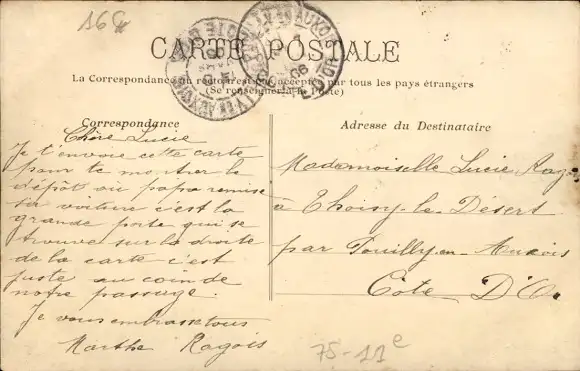 166
CARTE POSTALE
La Correspondance au recto n'est pas acceptée par tous les pays étrangers
(Se renseigner à la Poste)
Correspondance
Chère Lucie
Je t'envoie cette carte
pour te montrer le
dépôt ou papa remise
sa voiture c'est la
grande porte qui se
trouve sur la droite
de la carte c'est
juste au coin de
notre passage.
Je vous embrasse tous
Marthe Ragois
Adresse du Destinataire
Mademoiselle Lucie
à Thoisy-le-Désert
par Pouilly-en-Auxois
Cote D'Or
75-11e